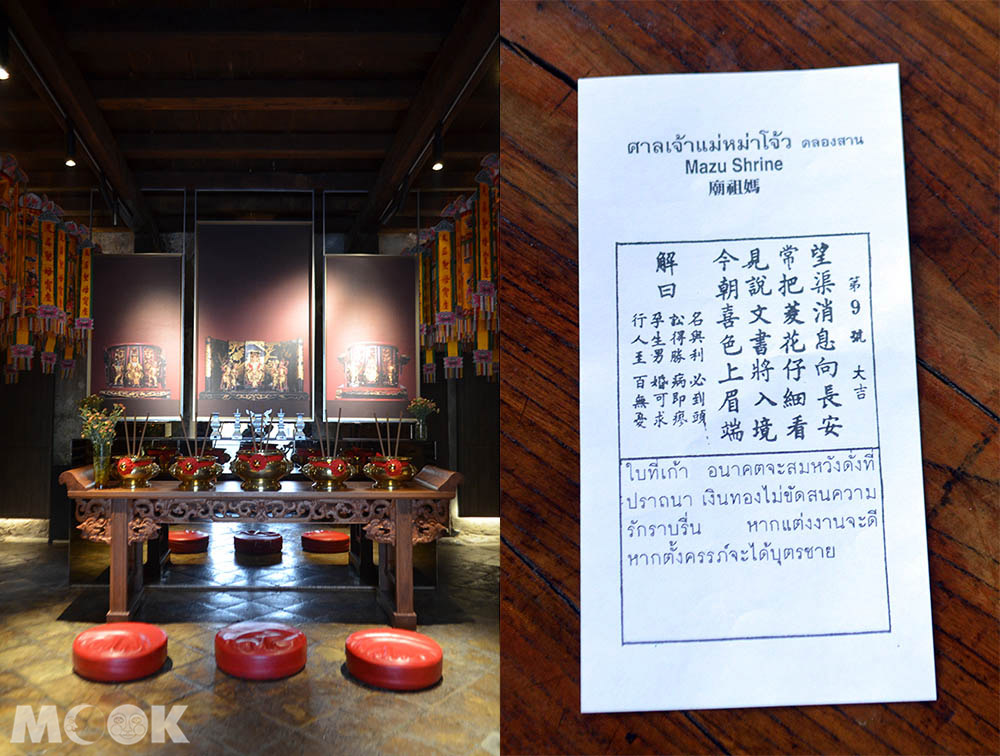 ศาลเจ้าแม่หม่าโจ้ว คลองสาน
Mazu Shrine
廟祖媽
第9號 大吉
望渠消息向長安
常把菱花仔細看
見說文書將入境
今朝喜色上眉端
解曰
名與利 必到頭
訟得勝 病即瘳
孕生男 婚可求
行人至 百無憂
ใบที่เก้า อนาคตจะสมหวังดังที่
ปราถนา เงินทองไม่ขัดสนความ
รักราบรื่น หากแต่งงานจะดี
หากตั้งครรภ์จะได้บุตรชาย
MOOK